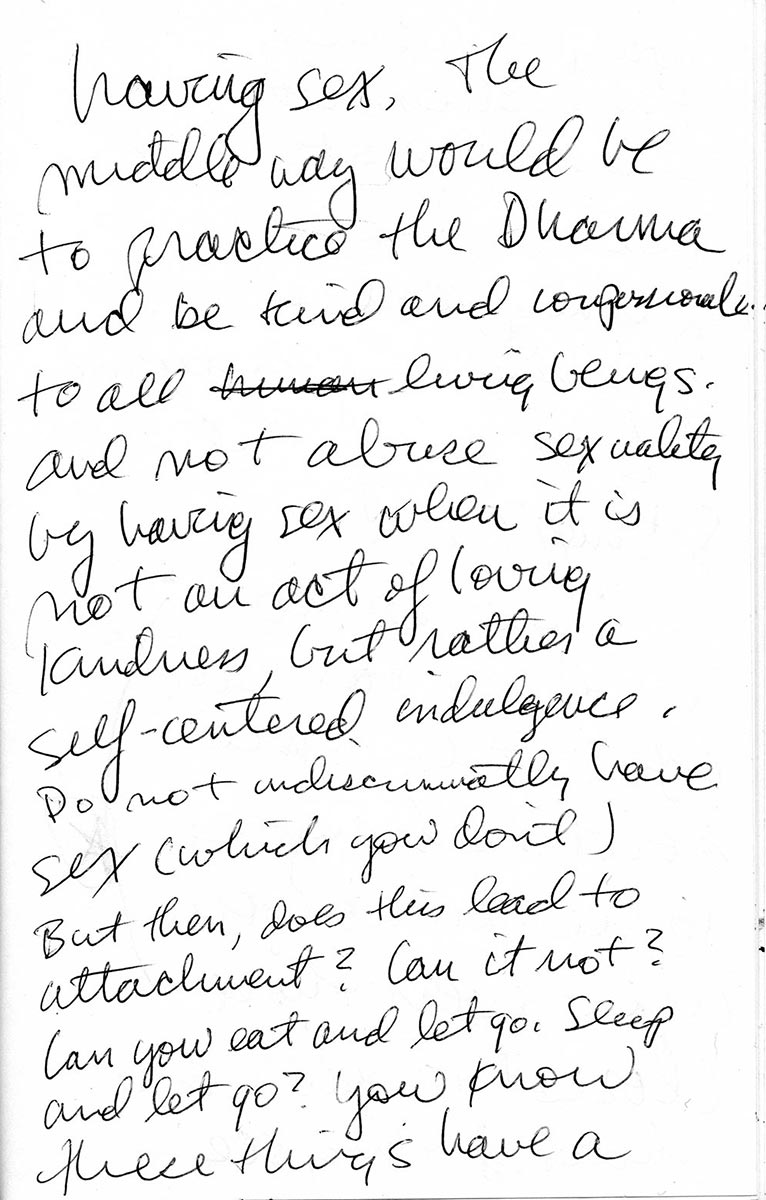 having sex, the
middle way would be
to practice the Dharma
and be kind and compassionate
to all human living beings.
and not abuse sexuality
by having sex when it is
not an act of loving
kindness, but rather a
self-centered indulgence.
Do not indiscriminatly have
sex (which you don't)
But then, does this lead to
attachment? Can it not?
Can you eat and let go. Sleep
and let go? You know
these things have a